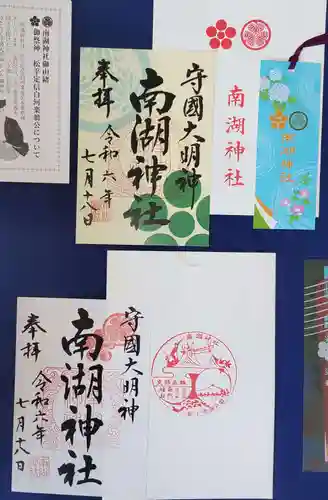 南湖神社御由緒
御祭神　松平定信白河楽翁公について
南湖神社
守國大明神
南湖神社
奉拝
令和六年
七月十八日
守國大明神
南湖神社
奉拝
令和六年
七月十八日